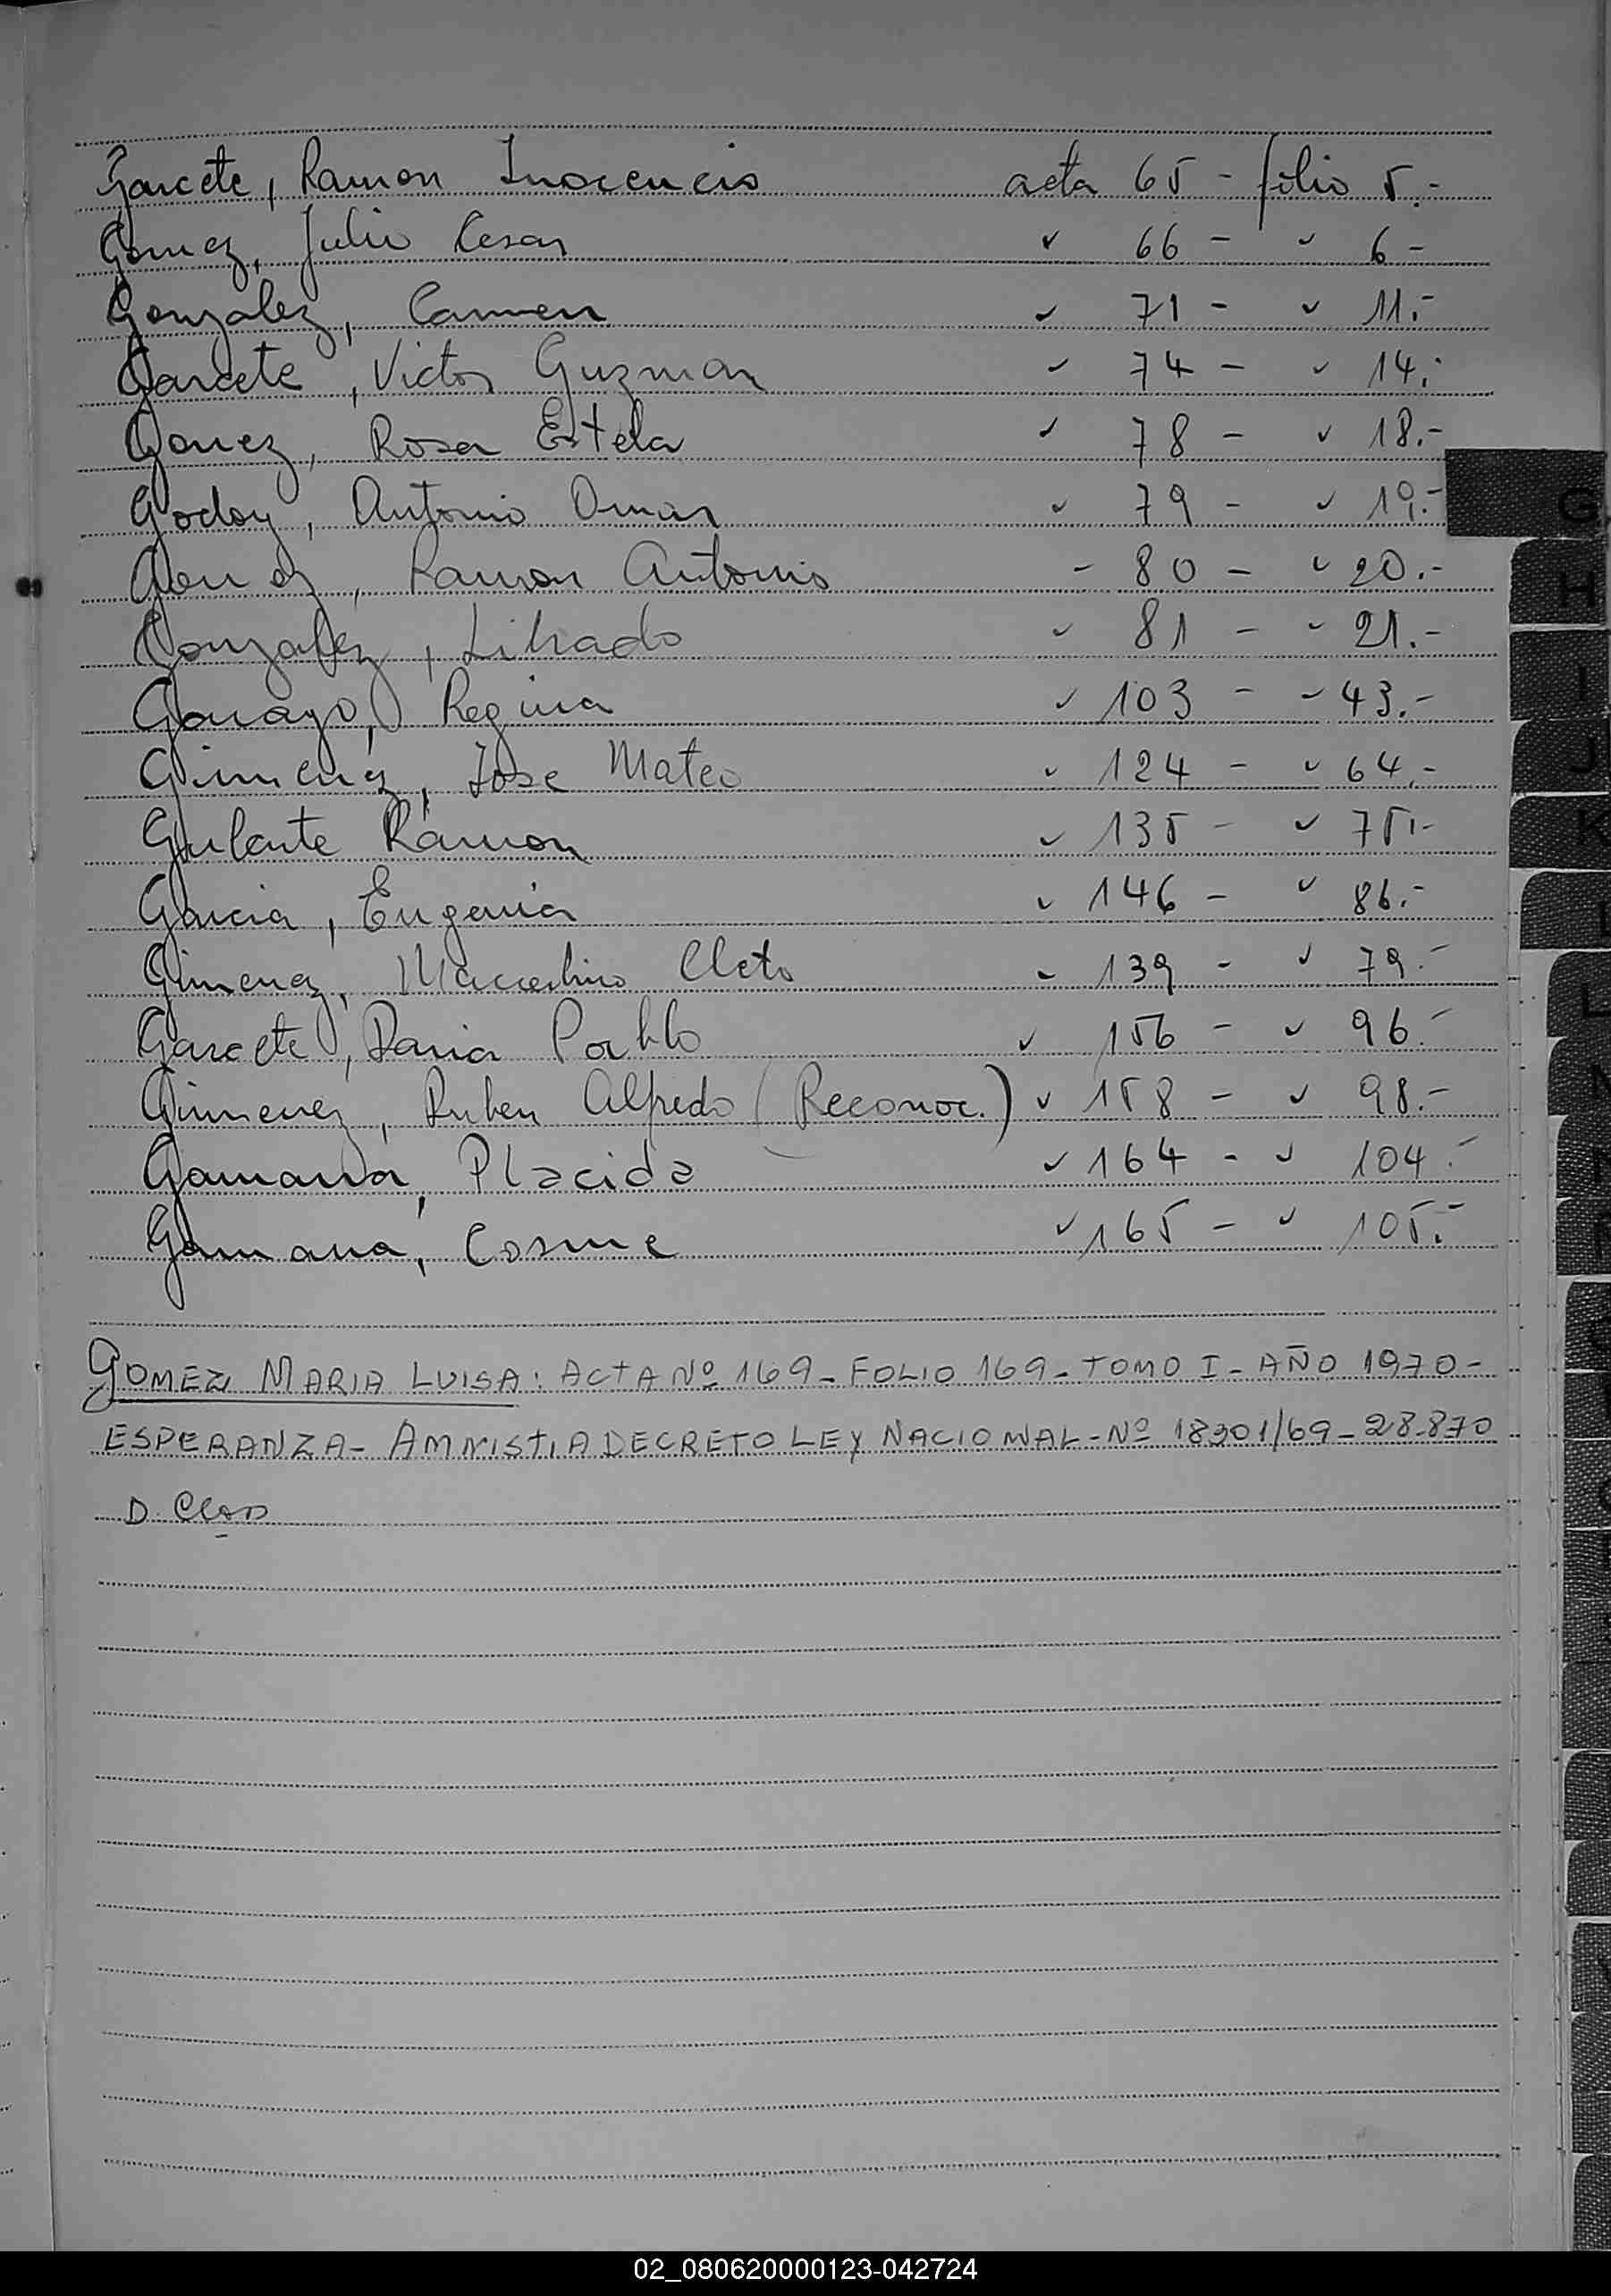 Garcete, Ramon Inocencio acta 65 - folio 5.-
Gomez, Julio Cesar " 66 - " 6 -
Gonzalez, Carmen " 71 - " 11.-
Garcete, Victor Guzman " 74 - " 14.-
Gomez, Rosa Estela " 78 - " 18.-
Godoy, Antonio Omar " 79 - " 19.-
Gomez, Ramon Antonio " 80 - " 20.-
Gonzalez, Librado " 81 - " 21.-
Garayo, Regina " 103 - " 43.-
Gimenez, Jose Mateo " 124 - " 64.-
Ramon " 135 - " 75.-
Garcia, Eugenia " 146 - " 86.-
Gimenez, Cleto " 139 - " 79.-
Garcete, Pablo " 156 - " 96.-
Gimenez, Ruben Alfredo (Reconoc.) " 158 - " 98.-
Gamarra, Placida " 164 - " 104.-
Gamarra, Cosme " 165 - " 105.-
GOMEZ MARIA LUISA: ACTA Nº 169 - FOLIO 169 - TOMO I - AÑO 1970 -
ESPERANZA - AMNISTIA DECRETO LEY NACIONAL - Nº 18301/69 - 28-8-70
G
H
I
J
K
L
02_080620000123-042724